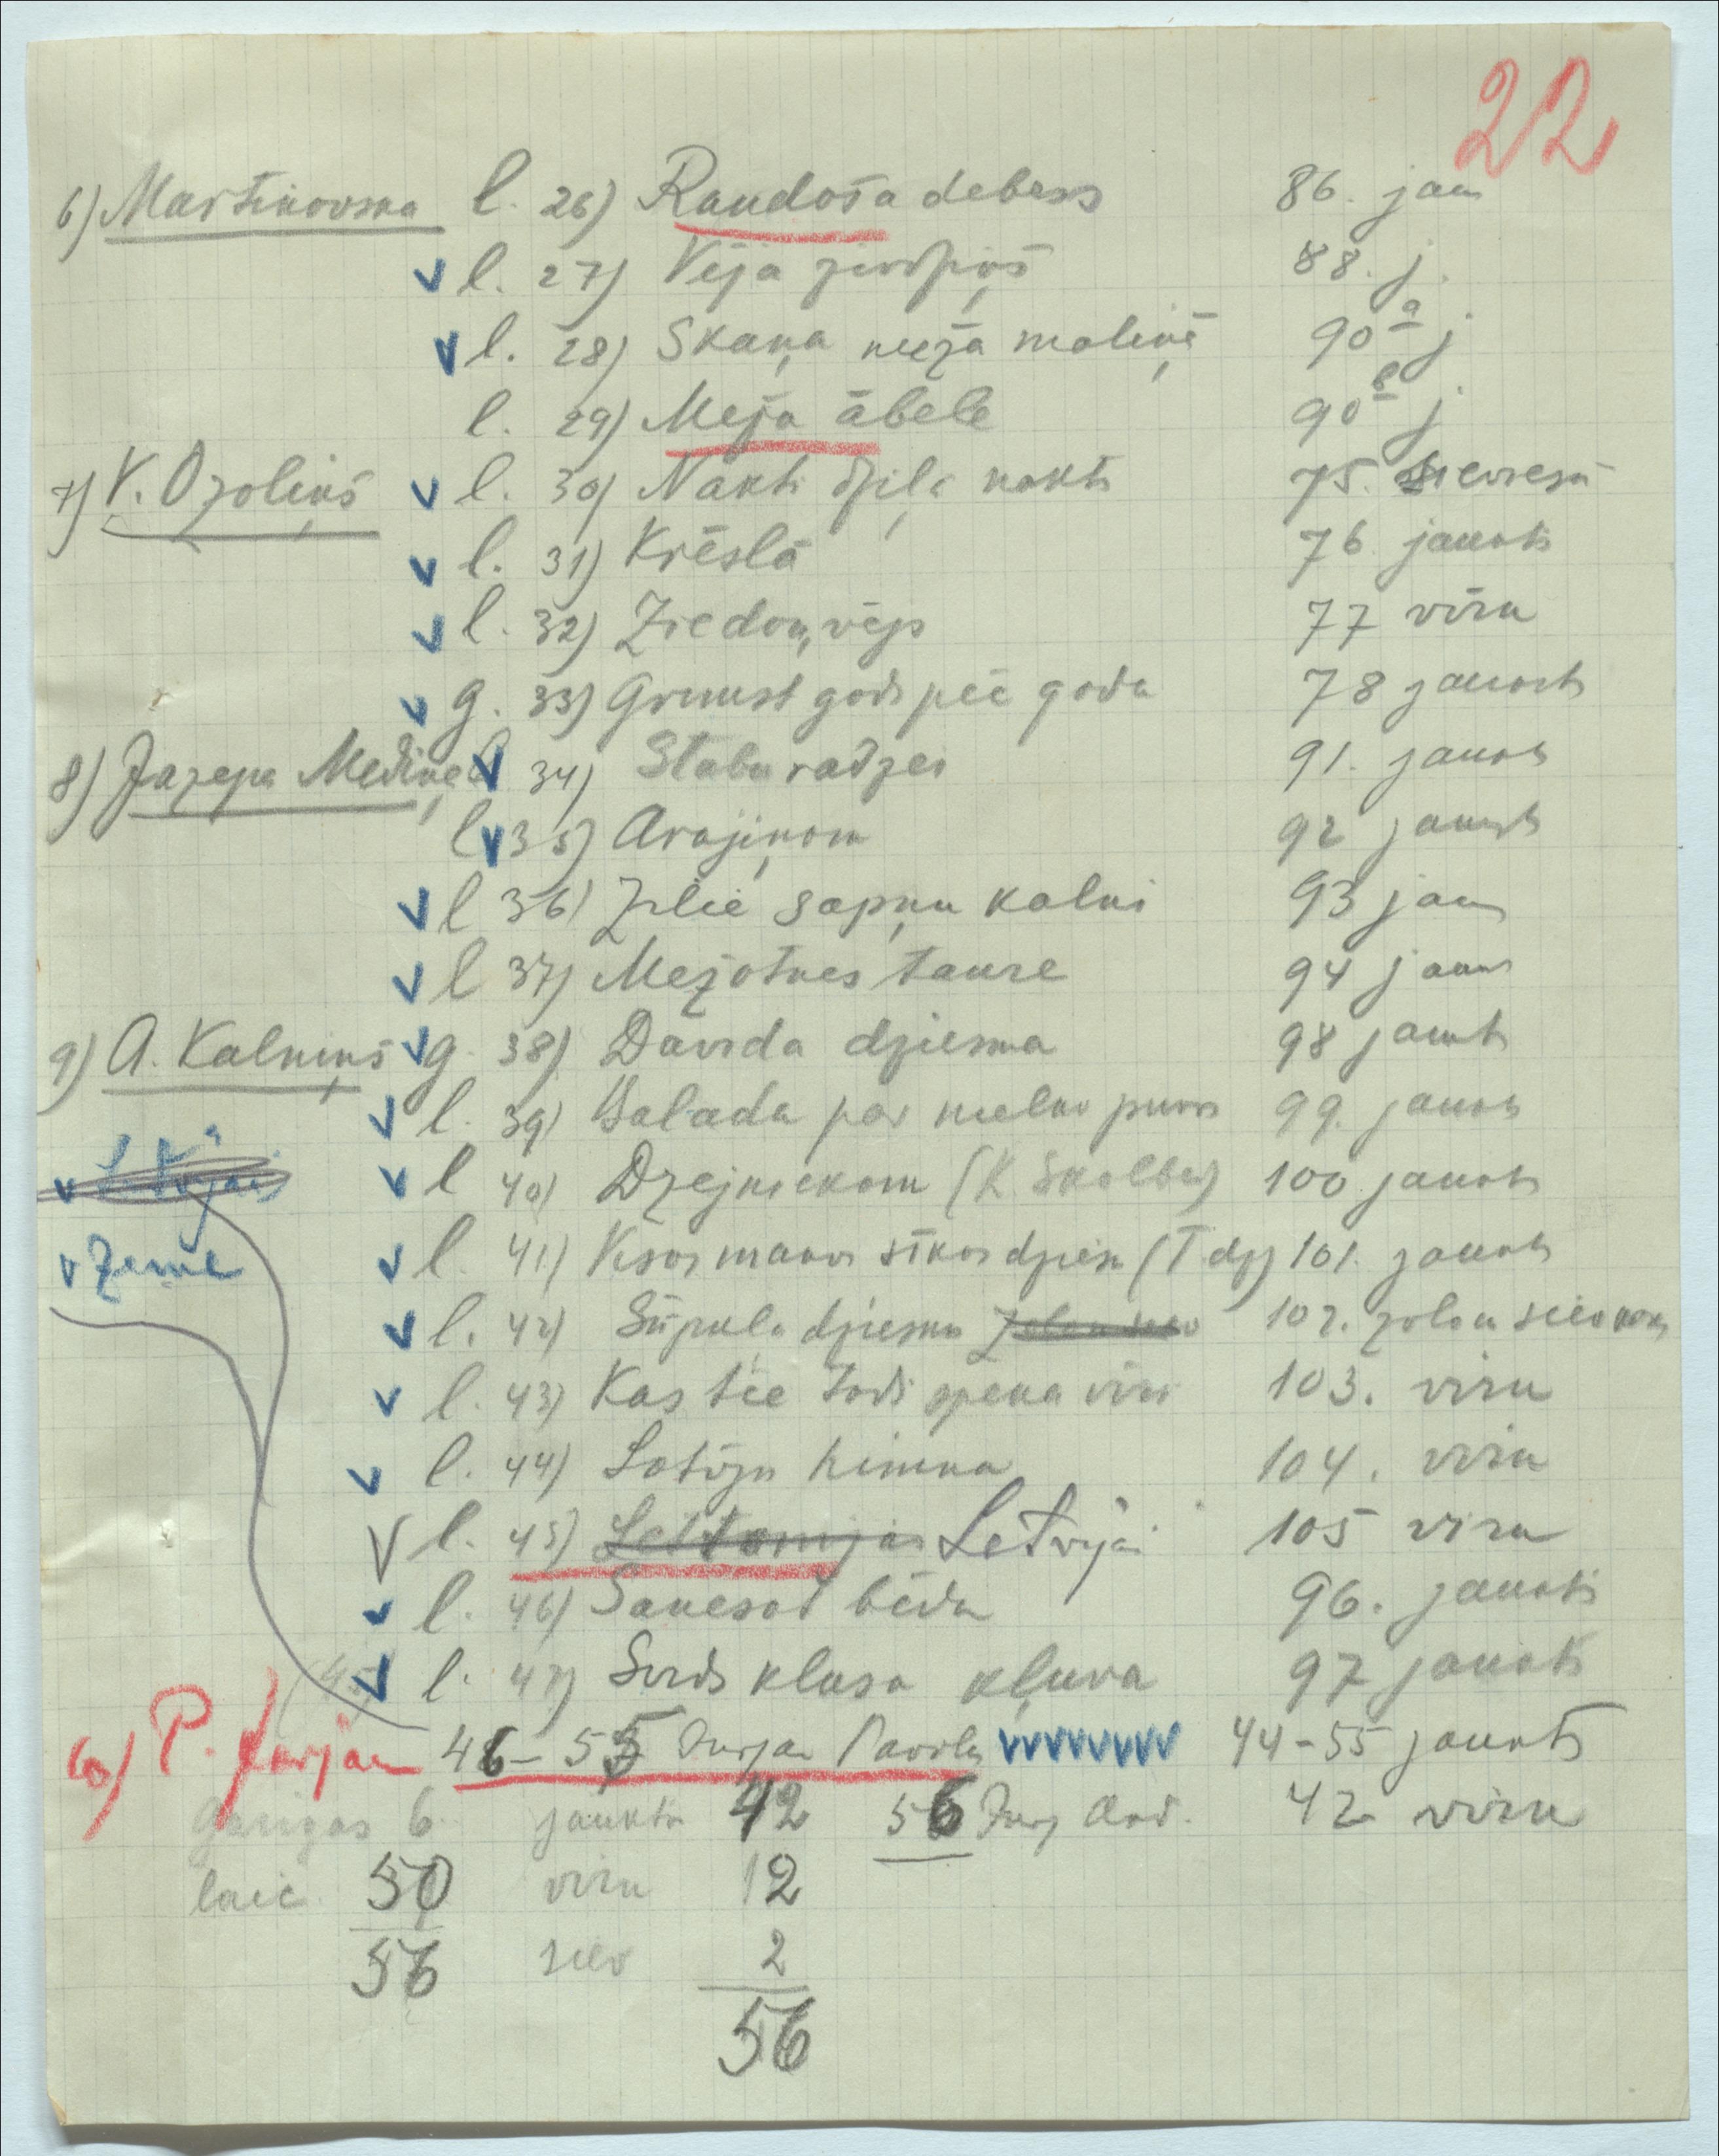 22
6) Martinovska l. 26) Raudoša debess 86. jau
v l. 27) Vēja zirdziņš 88. j.
v l. 28) Skaņa meža maliņā 90 a j
l. 29) Meža ābele 90 b j
7) V. Ozoliņš v l. 30) Nakti dziļi nakti 75. sieviešu
v l. 31) Krēslā 76. jaukts
v l. 32) Ziedoņvējs 77 vīru
v g. 33) Grimst gads pēc gada 78 jaukts
8) Jāzeps Mediņš l v 34) Staburadzei 91. jaukts
l v 35) Arājiņam 92 jaukts
v l 36) Zilie sapņu kalni 93 jau
v l 37) Mežotnes taure 94 jauk
9) A. Kalniņš v g. 38) Dāvida dziesma 98 jaukt
v l. 39) Balāda par melno puisi 99. jaukts
v Latvijai v l 40) Dzejniekam (K. Skalbes) 100 jaukts
v Zeme v l. 41) Visas manas sīkas dziesm (T dz) 101. jaukts
v l. 42) Šūpuļa dziesma 102. solo u siev kora
v l. 43) Kas tie tādi spēka vīri 103. vīru
v l. 44) Latvju himna 104. vīru
V l. 45) Latvijai 105 vīru
v l. 46) Sanesat bēdu 96. jaukts
(45) v l. 47) Sirds klusa kļuva 97 jaukts
10) P. Jurjān 46-55 Jurjan Pāvils vvvvvvvv 44-55 jaukts
garīgas 6 jaukta 42 56 Jurj And. 42 vīru
laic 50 vīru 12
56 siev 2
56